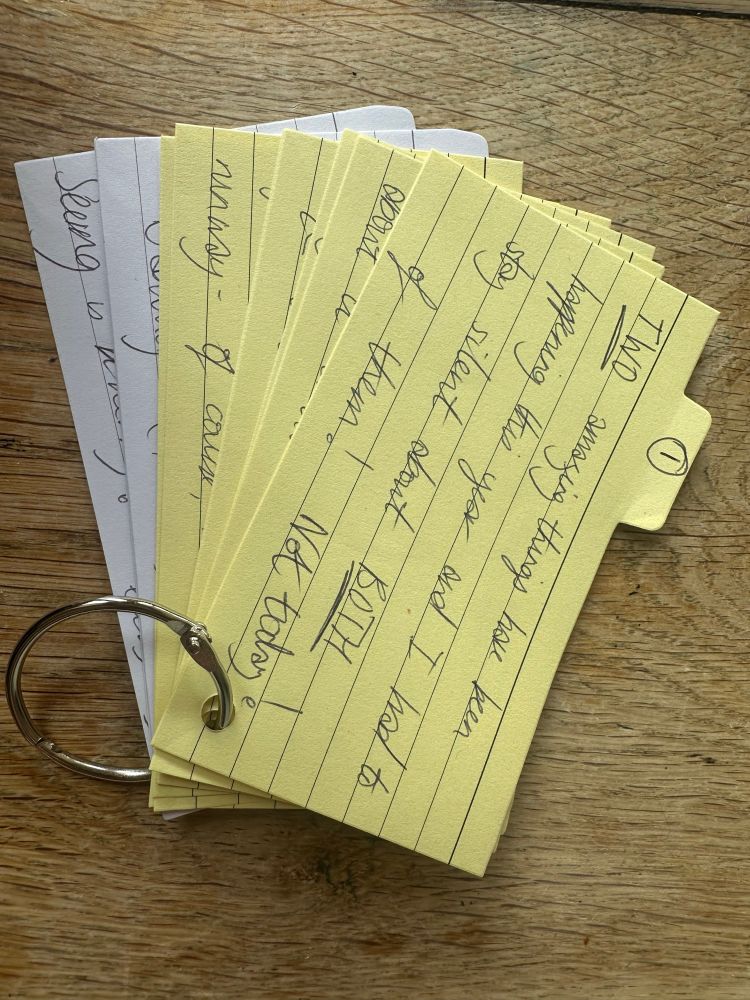 1
TWO amazing things have been
happening this year and I had to
stay silent about BOTH
of them! Not today!
about
runway - of course,
Seeing is